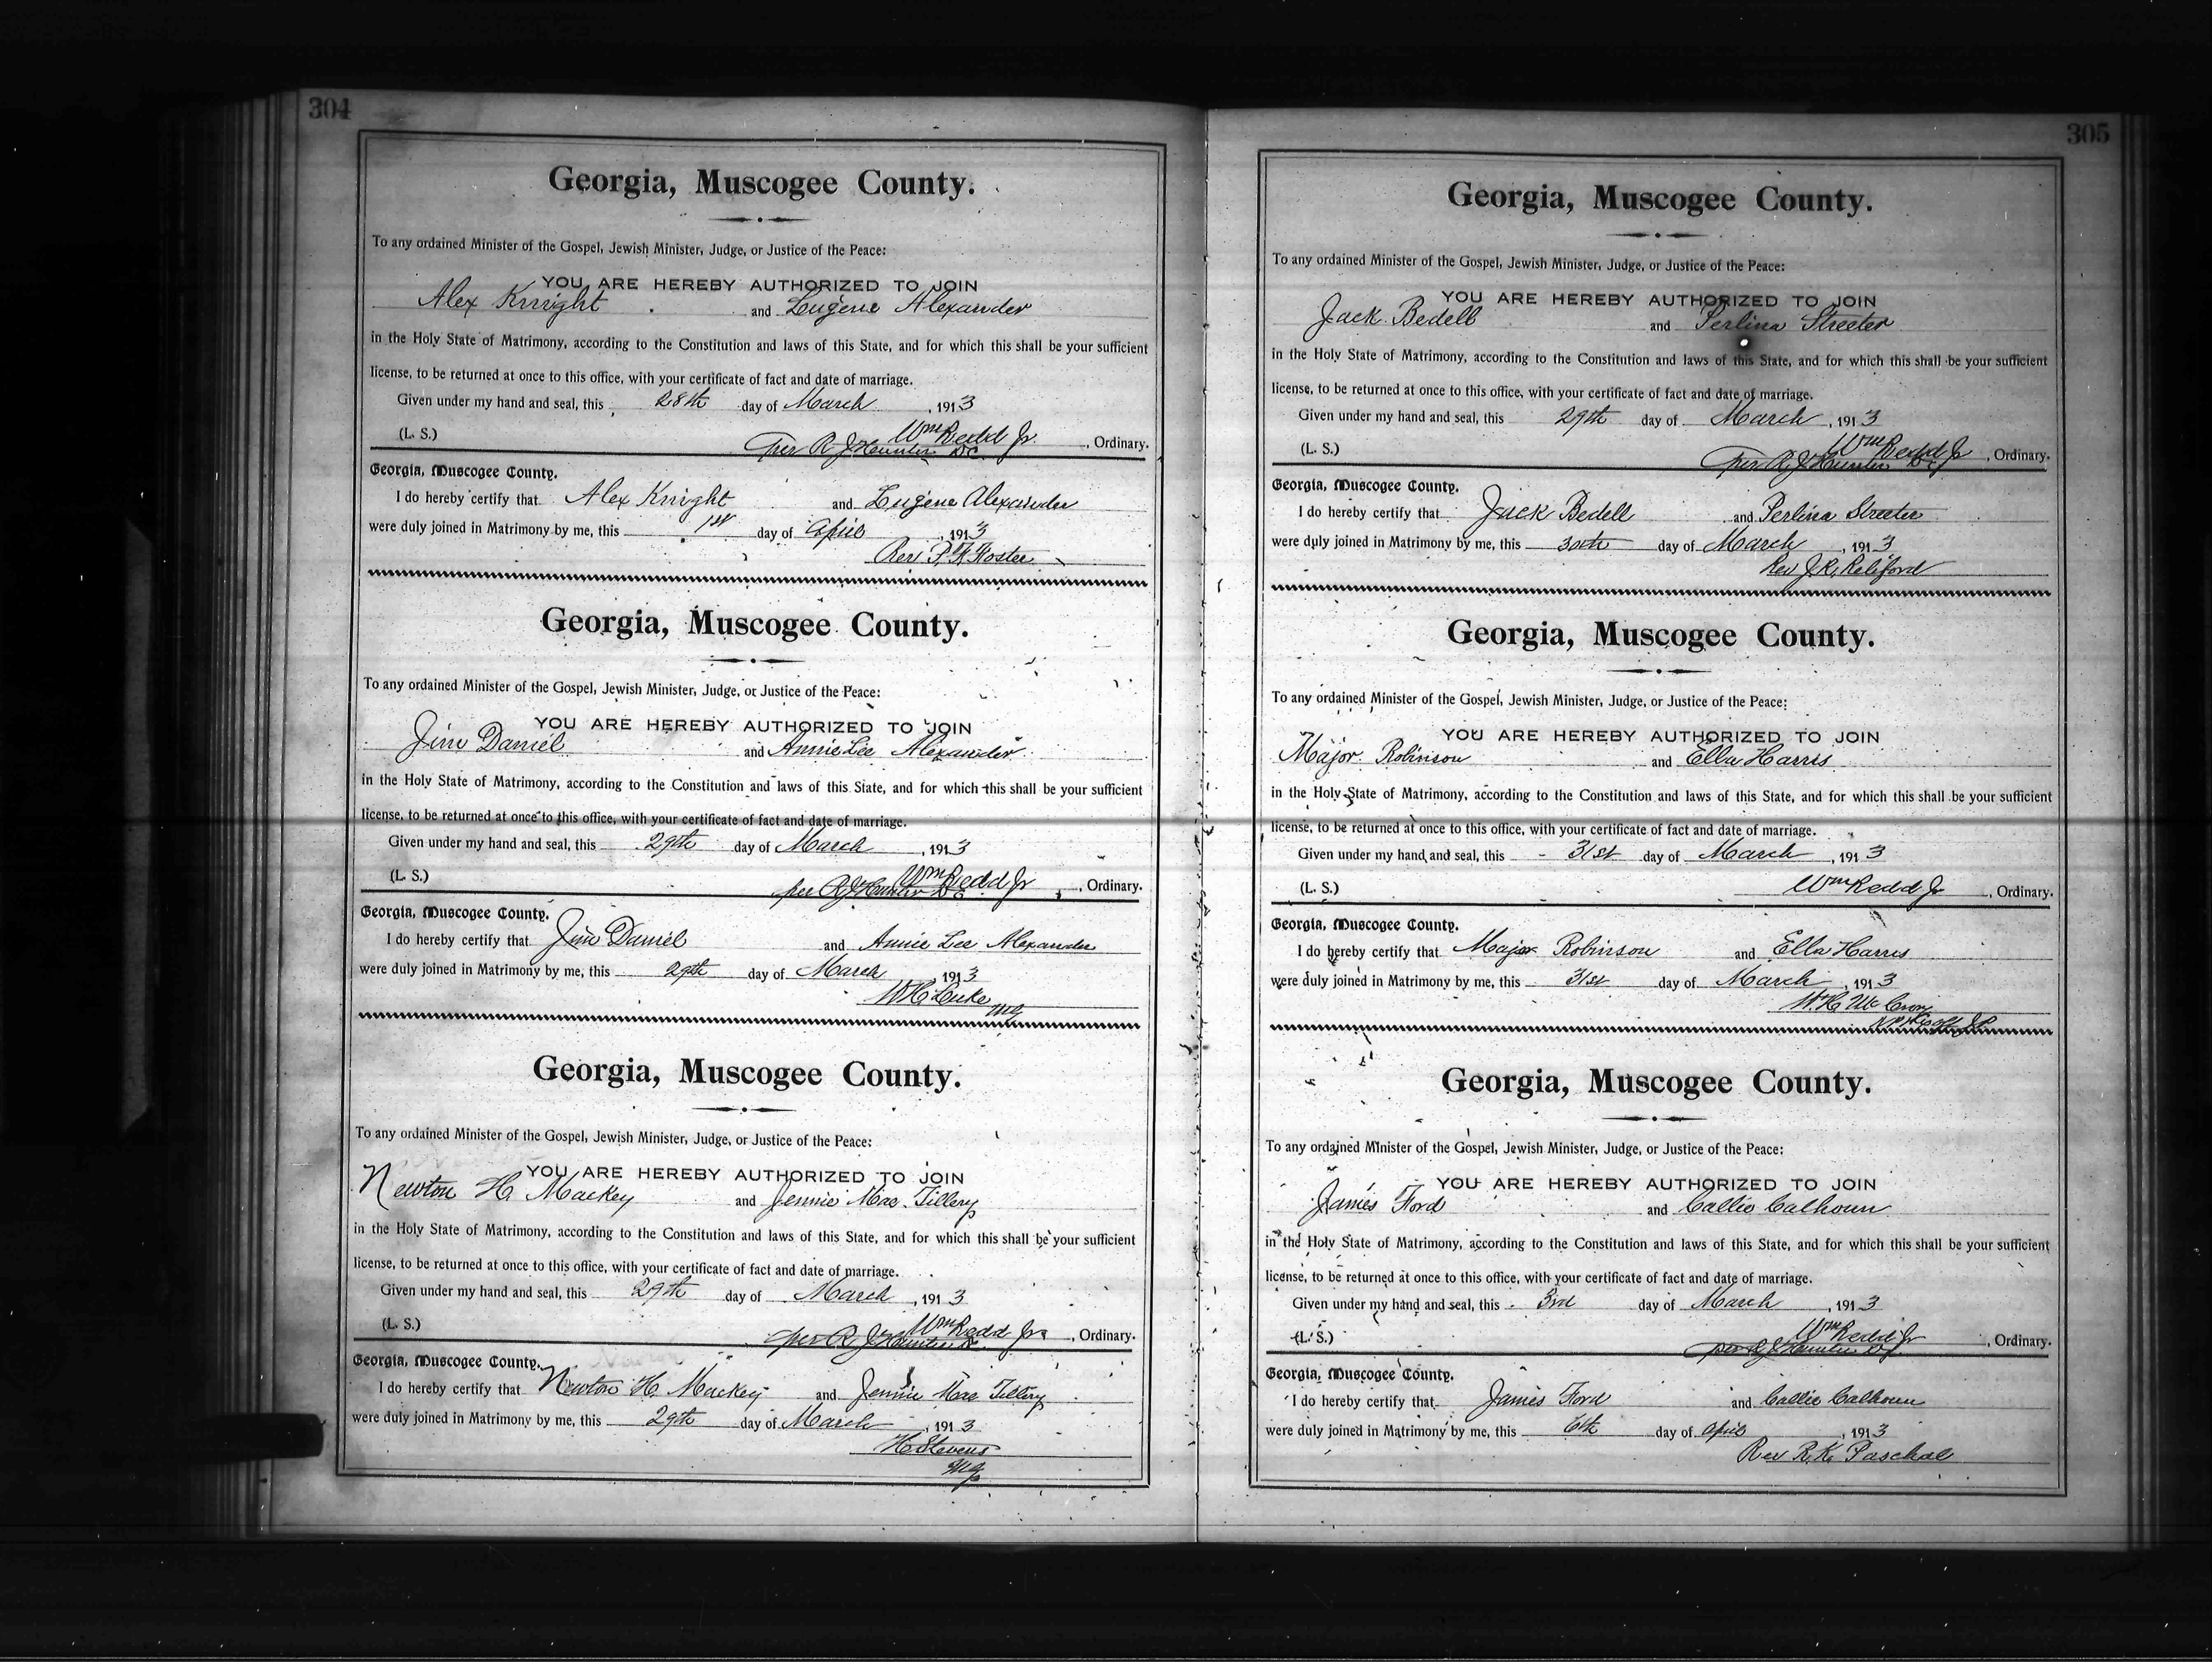 304
Georgia, Muscogee County.
To any ordained Minister of the Gospel, Jewish Minister, Judge, or Justice of the Peace:
YOU ARE HEREBY AUTHORIZED TO JOIN
Alex Knight and Eugene Alexander
in the Holy State of Matrimony, according to the Constitution and laws of this State, and for which this shall be your sufficient
license, to be returned at once to this office, with your certificate of fact and date of marriage.
Given under my hand and seal, this 28th day of March, 1913
(L. S.) Wm Redd Jr., Ordinary.
per R J Hunter DC
Georgia, Muscogee County.
I do hereby certify that Alex Knight and Eugene Alexander
were duly joined in Matrimony by me, this 1st day of April, 1913
Rev
Georgia, Muscogee County.
To any ordained Minister of the Gospel, Jewish Minister, Judge, or Justice of the Peace:
YOU ARE HEREBY AUTHORIZED TO JOIN
Jim Daniel and Annie Lee Alexander
in the Holy State of Matrimony, according to the Constitution and laws of this State, and for which this shall be your sufficient
license, to be returned at once to this office, with your certificate of fact and date of marriage.
Given under my hand and seal, this 29th day of March, 1913
(L. S.) Wm Redd Jr, Ordinary.
per R J Hunter DC
Georgia, Muscogee County.
I do hereby certify that Jim Daniel and Annie Lee Alexander
were duly joined in Matrimony by me, this 29th day of March, 1913
W H Luke
MG
Georgia, Muscogee County.
To any ordained Minister of the Gospel, Jewish Minister, Judge, or Justice of the Peace:
YOU ARE HEREBY AUTHORIZED TO JOIN
Newton H. Mackey and Jennie Mae Tillery
in the Holy State of Matrimony, according to the Constitution and laws of this State, and for which this shall be your sufficient
license, to be returned at once to this office, with your certificate of fact and date of marriage.
Given under my hand and seal, this 29th day of March, 1913
(L. S.) Wm Redd Jr, Ordinary.
per R J Hunter DC
Georgia, Muscogee County.
I do hereby certify that Newton H. Mackey and Jennie Mae Tillery
were duly joined in Matrimony by me, this 29th day of March, 1913
H Stevens
MG
305
Georgia, Muscogee County.
To any ordained Minister of the Gospel, Jewish Minister, Judge, or Justice of the Peace:
YOU ARE HEREBY AUTHORIZED TO JOIN
Jack Bedell and Perlina Streeter
in the Holy State of Matrimony, according to the Constitution and laws of this State, and for which this shall be your sufficient
license, to be returned at once to this office, with your certificate of fact and date of marriage.
Given under my hand and seal, this 29th day of March, 1913
(L. S.) Wm Redd Jr, Ordinary.
per R J Hunter DC
Georgia, Muscogee County.
I do hereby certify that Jack Bedell and Perlina Streeter
were duly joined in Matrimony by me, this 30th day of March, 1913
Rev J. R. Reliford
Georgia, Muscogee County.
To any ordained Minister of the Gospel, Jewish Minister, Judge, or Justice of the Peace:
YOU ARE HEREBY AUTHORIZED TO JOIN
Major Robinson and Ella Harris
in the Holy State of Matrimony, according to the Constitution and laws of this State, and for which this shall be your sufficient
license, to be returned at once to this office, with your certificate of fact and date of marriage.
Given under my hand and seal, this 31st day of March, 1913
(L. S.) Wm Redd Jr, Ordinary.
Georgia, Muscogee County.
I do hereby certify that Major Robinson and Ella Harris
were duly joined in Matrimony by me, this 31st day of March, 1913
W. H. McCrory
Georgia, Muscogee County.
To any ordained Minister of the Gospel, Jewish Minister, Judge, or Justice of the Peace:
YOU ARE HEREBY AUTHORIZED TO JOIN
James Ford and Callie Calhoun
in the Holy State of Matrimony, according to the Constitution and laws of this State, and for which this shall be your sufficient
license, to be returned at once to this office, with your certificate of fact and date of marriage.
Given under my hand and seal, this 3rd day of March, 1913
(L. S.) Wm Redd Jr, Ordinary.
per R J Hunter DC
Georgia, Muscogee County.
I do hereby certify that James Ford and Callie Calhoun
were duly joined in Matrimony by me, this 6th day of April, 1913
Rev R. K. Paschal